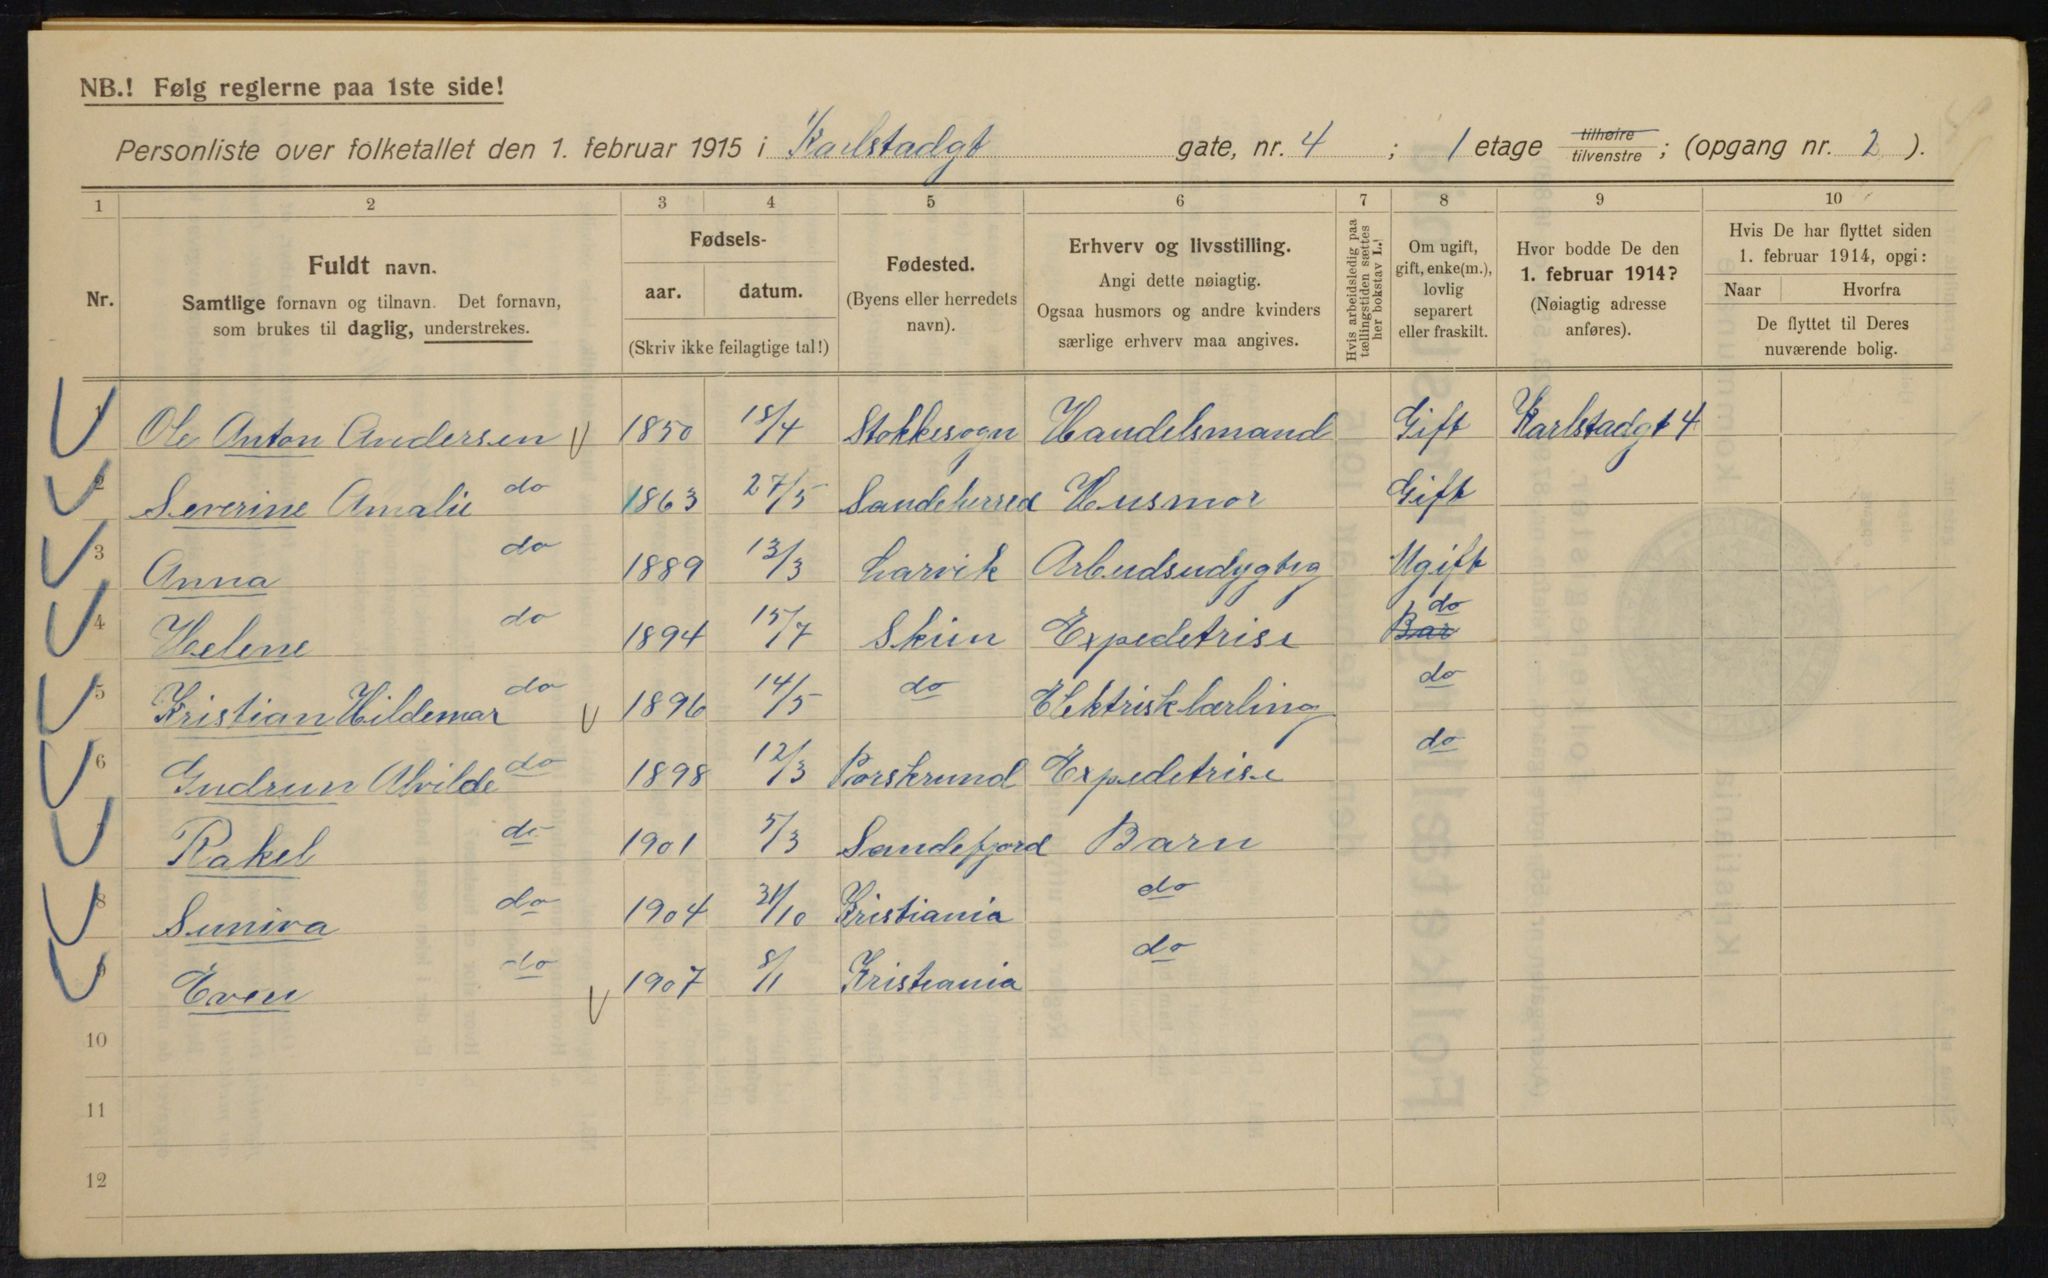 NB.! Følg reglerne paa 1ste side!
Personliste over folketallet den 1. februar 1915 i Karlstadgt gate, nr. 4 ; 1 etage tilhøire tilvenstre ; (opgang nr. 2 ).
1 2 3 4 5 6 7 8 9 10
Nr.
Fuldt navn.
Samtlige fornavn og tilnavn. Det fornavn,
som brukes til daglig, understrekes.
Fødsels-
aar. datum.
(Skriv ikke feilagtige tal!)
Fødested.
(Byens eller herredets
navn).
Erhverv og livsstilling.
Angi dette nøiagtig.
Ogsaa husmors og andre kvinders
særlige erhverv maa angives.
Hvis arbeidsledig paa
tællingstiden sættes
her bokstav L.
Om ugift,
gift, enke(m.),
lovlig
separert
eller fraskilt.
Hvor bodde De den
1. februar 1914?
(Nøiagtig adresse
anføres).
Hvis De har flyttet siden
1. februar 1914, opgi:
Naar Hvorfra
De flyttet til Deres
nuværende bolig.
1 Ole Anton Andersen 1850 18/4 Stokkesogn Handelsmand Gift Karlstadgt 4
2 Severine Amalie do 1863 27/5 Sandeherred Husmor Gift
3 Anna do 1889 13/3 Larvik Arbeidsudygtig Ugift
4 Helene do 1894 15/7 Skien Expedetrise Bar do
5 Kristian Hildemar do 1896 14/5 do Elektrisklærling do
6 Gudrun Alvilde do 1898 12/3 Porskrund Expedetrise do
7 Rakel do 1901 5/3 Sandefjord Barn
8 Suniva do 1904 31/10 Kristiania do
9 Even do 1907 8/1 Kristiania do
10
11
12